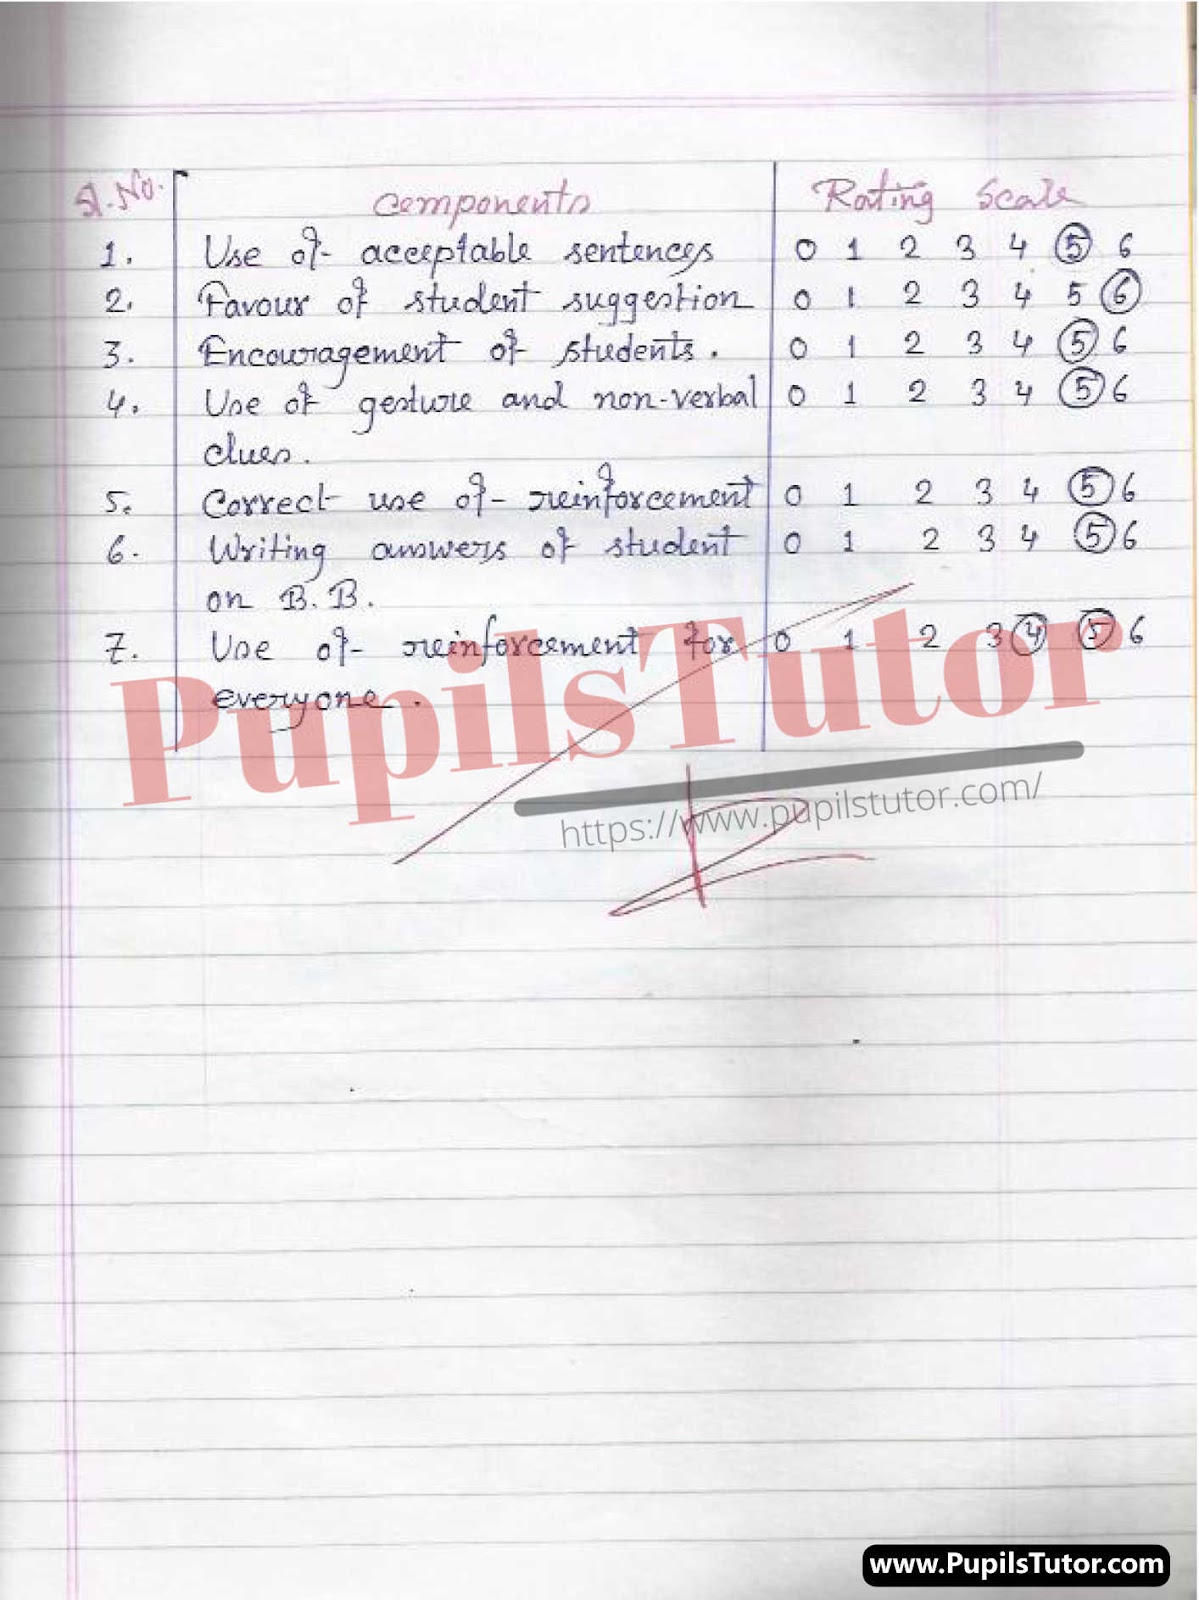 Sr. No. Components Rating Scale
1. Use of acceptable sentences 0 1 2 3 4 5 6
2. Favour of student suggestion 0 1 2 3 4 5 6
3. Encouragement of students. 0 1 2 3 4 5 6
4. Use of gesture and non-verbal 0 1 2 3 4 5 6
clues.
5. Correct use of reinforcement 0 1 2 3 4 5 6
6. Writing answers of student 0 1 2 3 4 5 6
on B.B.
7. Use of reinforcement for 0 1 2 3 4 5 6
everyone.
PupilsTutor
https://www.pupilstutor.com/
www.PupilsTutor.com